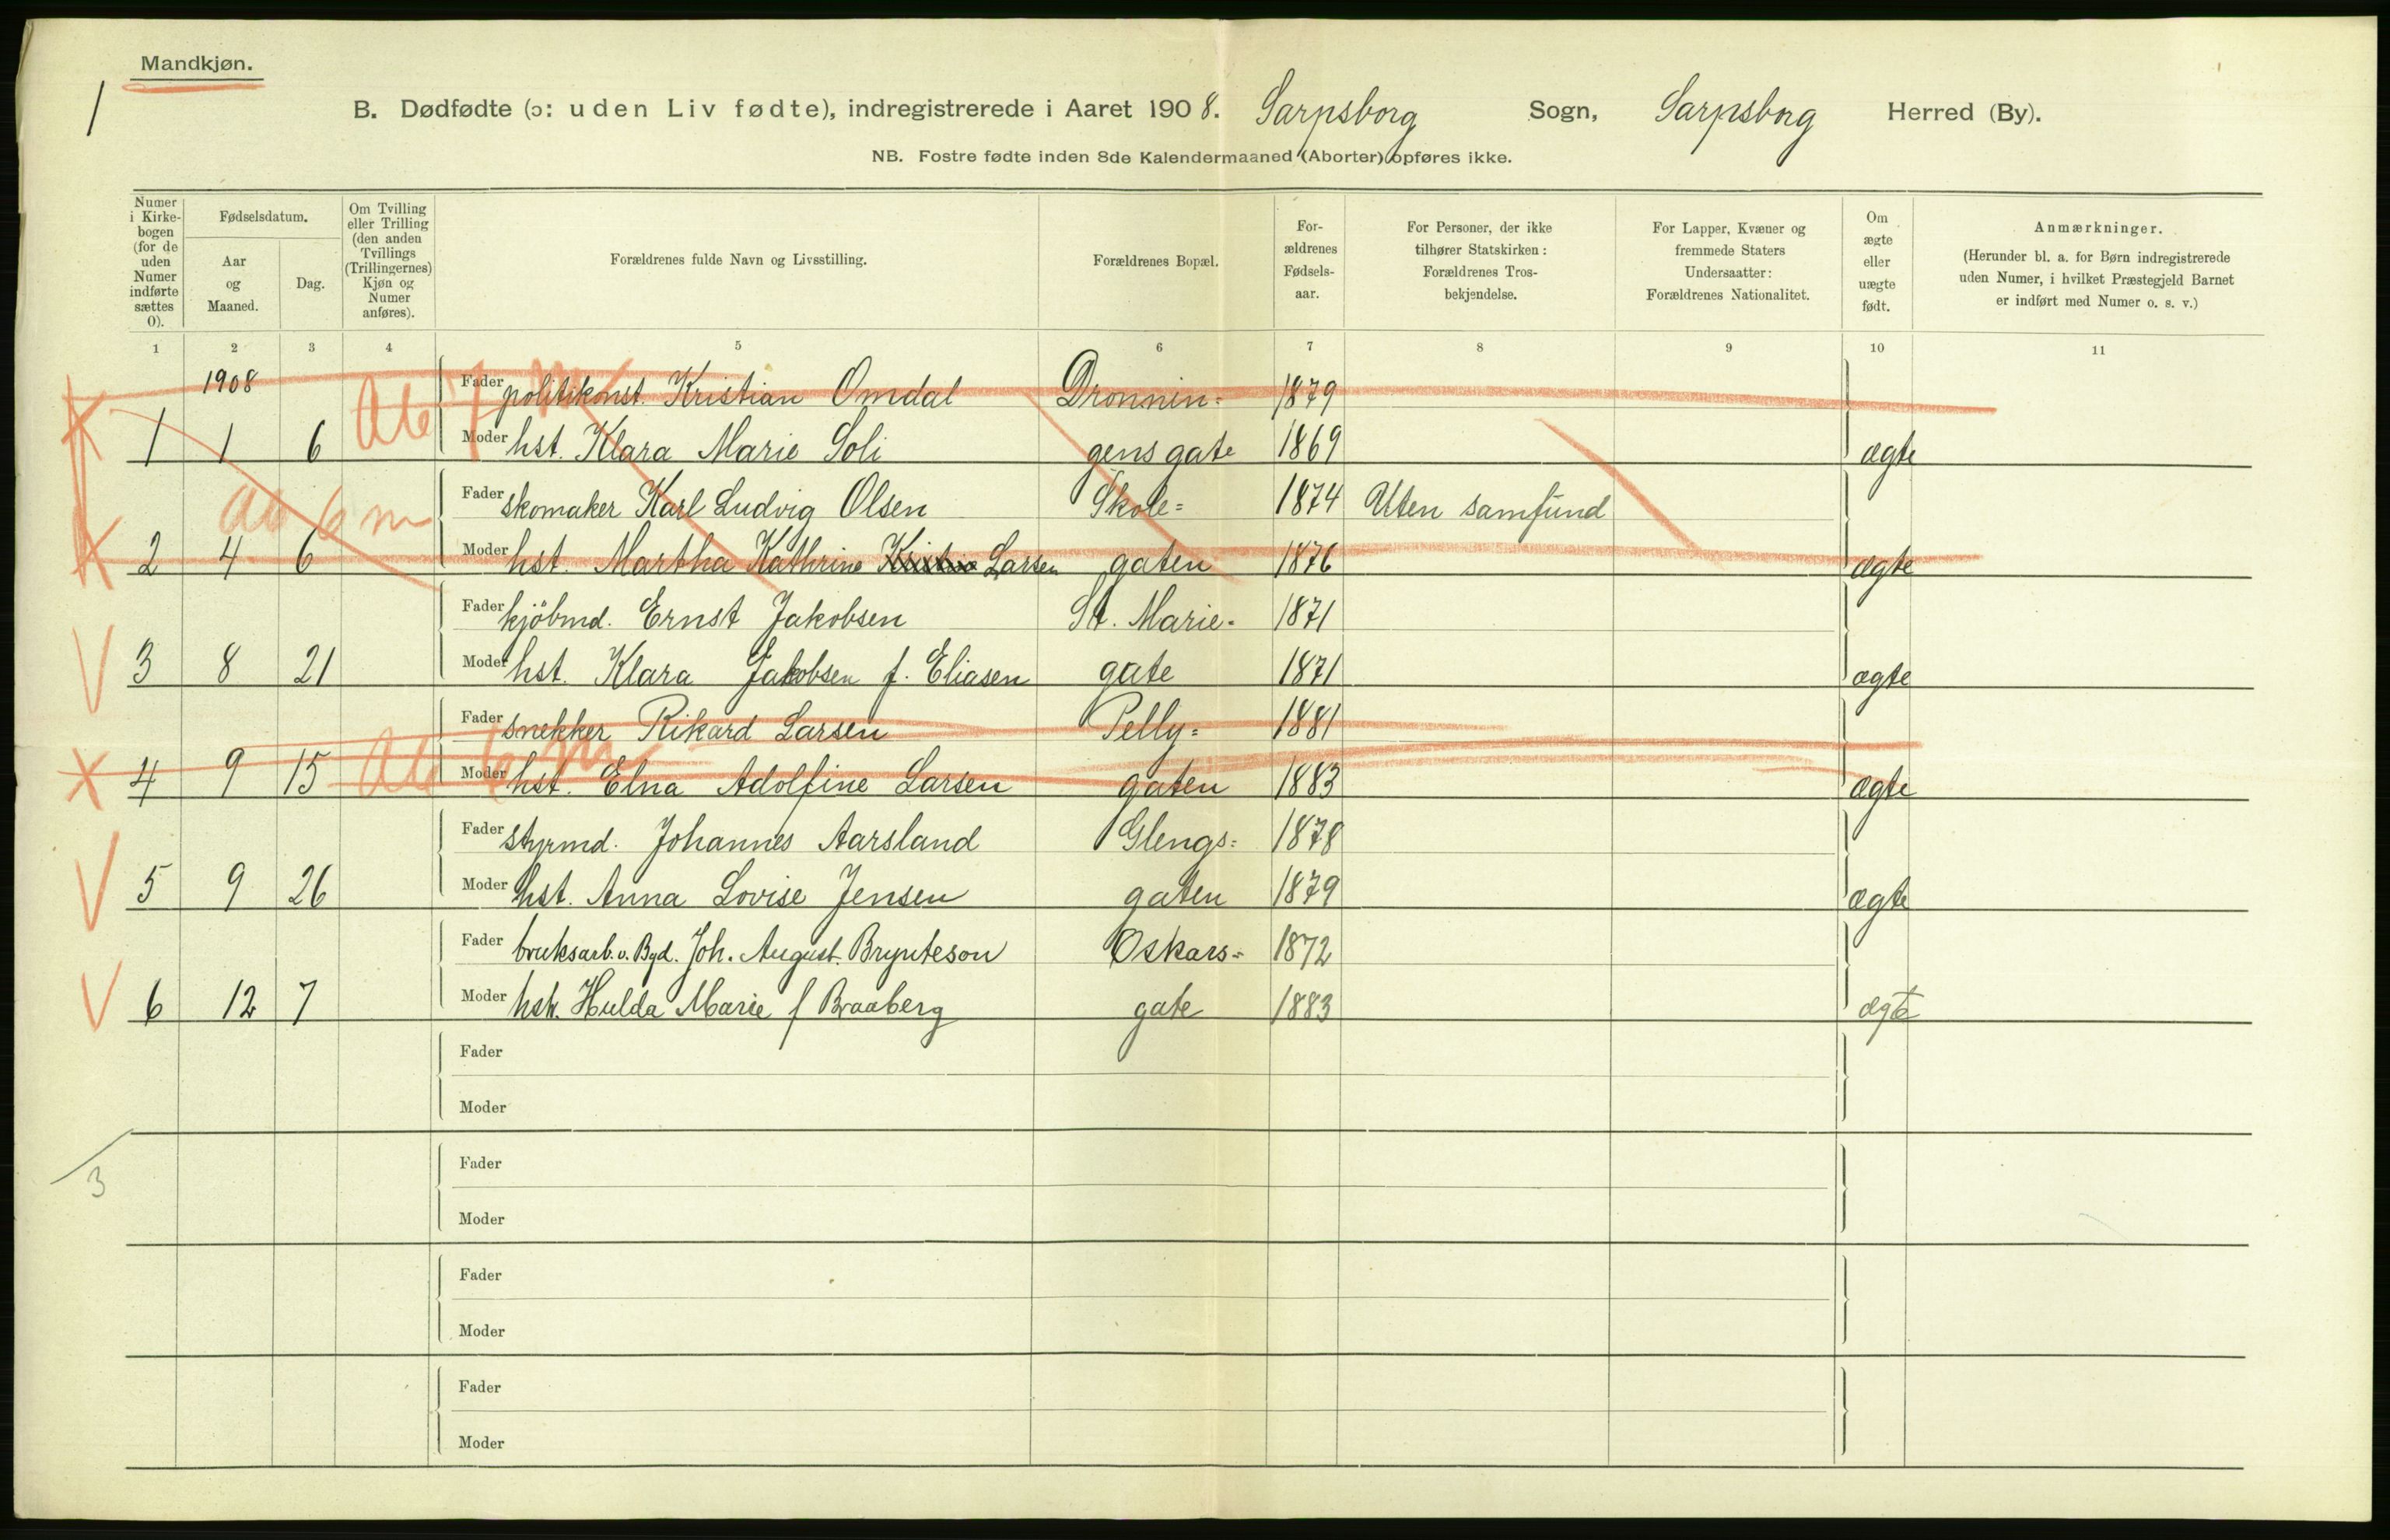 Mandkjøn.
1
B. Dødfødte (ɔ: uden Liv fødte), indregistrerede i Aaret 1908. Sarpsborg Sogn, Sarpsborg Herred (By).
NB. Fostre fødte inden 8de Kalendermaaned (Aborter) opføres ikke.
Numer i Kirkebogen (for de uden Numer indførte sættes 0).
Fødselsdatum.
Aar og Maaned.
Dag.
Om Tvilling eller Trilling (den anden Tvillings (Trillingernes) Kjøn og Numer anføres).
Forældrenes fulde Navn og Livsstilling.
Forældrenes Bopæl.
Forældrenes Fødselsaar.
For Personer, der ikke tilhører Statskirken: Forældrenes Trosbekjendelse.
For Lapper, Kvæner og fremmede Staters Undersaatter: Forældrenes Nationalitet.
Om ægte eller uægte født.
Anmærkninger.
(Herunder bl. a. for Børn indregistrerede uden Numer, i hvilket Præstegjeld Barnet er indført med Numer o. s. v.)
1 2 3 4 5 6 7 8 9 10 11
1908 Fader politikonst. Kristian Omdal Dronnin= 1879
Ab 7 m
1 1 6 Moder hst. Klara Marie Soli gens gate 1869 ægte
Fader skomaker Karl Ludvig Olsen Skole= 1874 Uten samfund
Ab 6 m
2 4 6 Moder hst. Martha Kathrine Larsen gaten 1876 ægte
Fader kjöbmd. Ernst Jakobsen St. Marie- 1871
3 8 21 Moder hst. Klara Jakobsen f. Eliasen gate 1871 ægte
Fader snekker Rikard Larsen Pelly= 1881
Ab 6 m
4 9 15 Moder hst. Elna Adolfine Larsen gaten 1883 ægte
Fader styrmd. Johannes Aarsland Glengs= 1878
5 9 26 Moder hst. Anna Lovise Jensen gaten 1879 ægte
Fader bruksarb. v. Bgd. Joh. August Brynteson Oskars= 1872
6 12 7 Moder hst. Hulda Marie f Braaberg gate 1883 ægte
Fader
Moder
3
Fader
Moder
Fader
Moder
Fader
Moder